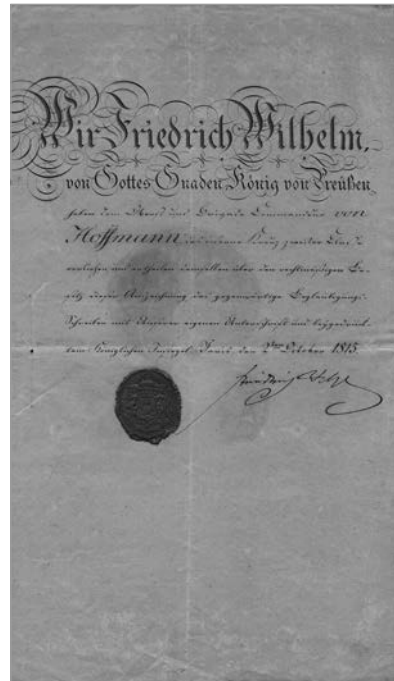 Wir Friedrich Wilhelm,
von Gottes Gnaden König von Preußen
haben dem Obrist und Brigade Commandeur von
Hoffmann das eiserne Kreuz zweiter Classe
verliehen und ertheilen demselben über den rechtmäßigen Be-
sitz dieser Auszeichnung das gegenwärtige Beglaubigungs-
Schreiben mit Unserer eigenen Unterschrift und beygedruck-
tem Königlichen Insiegel. Paris den 2ten October 1815.
Friedrich Wilhelm